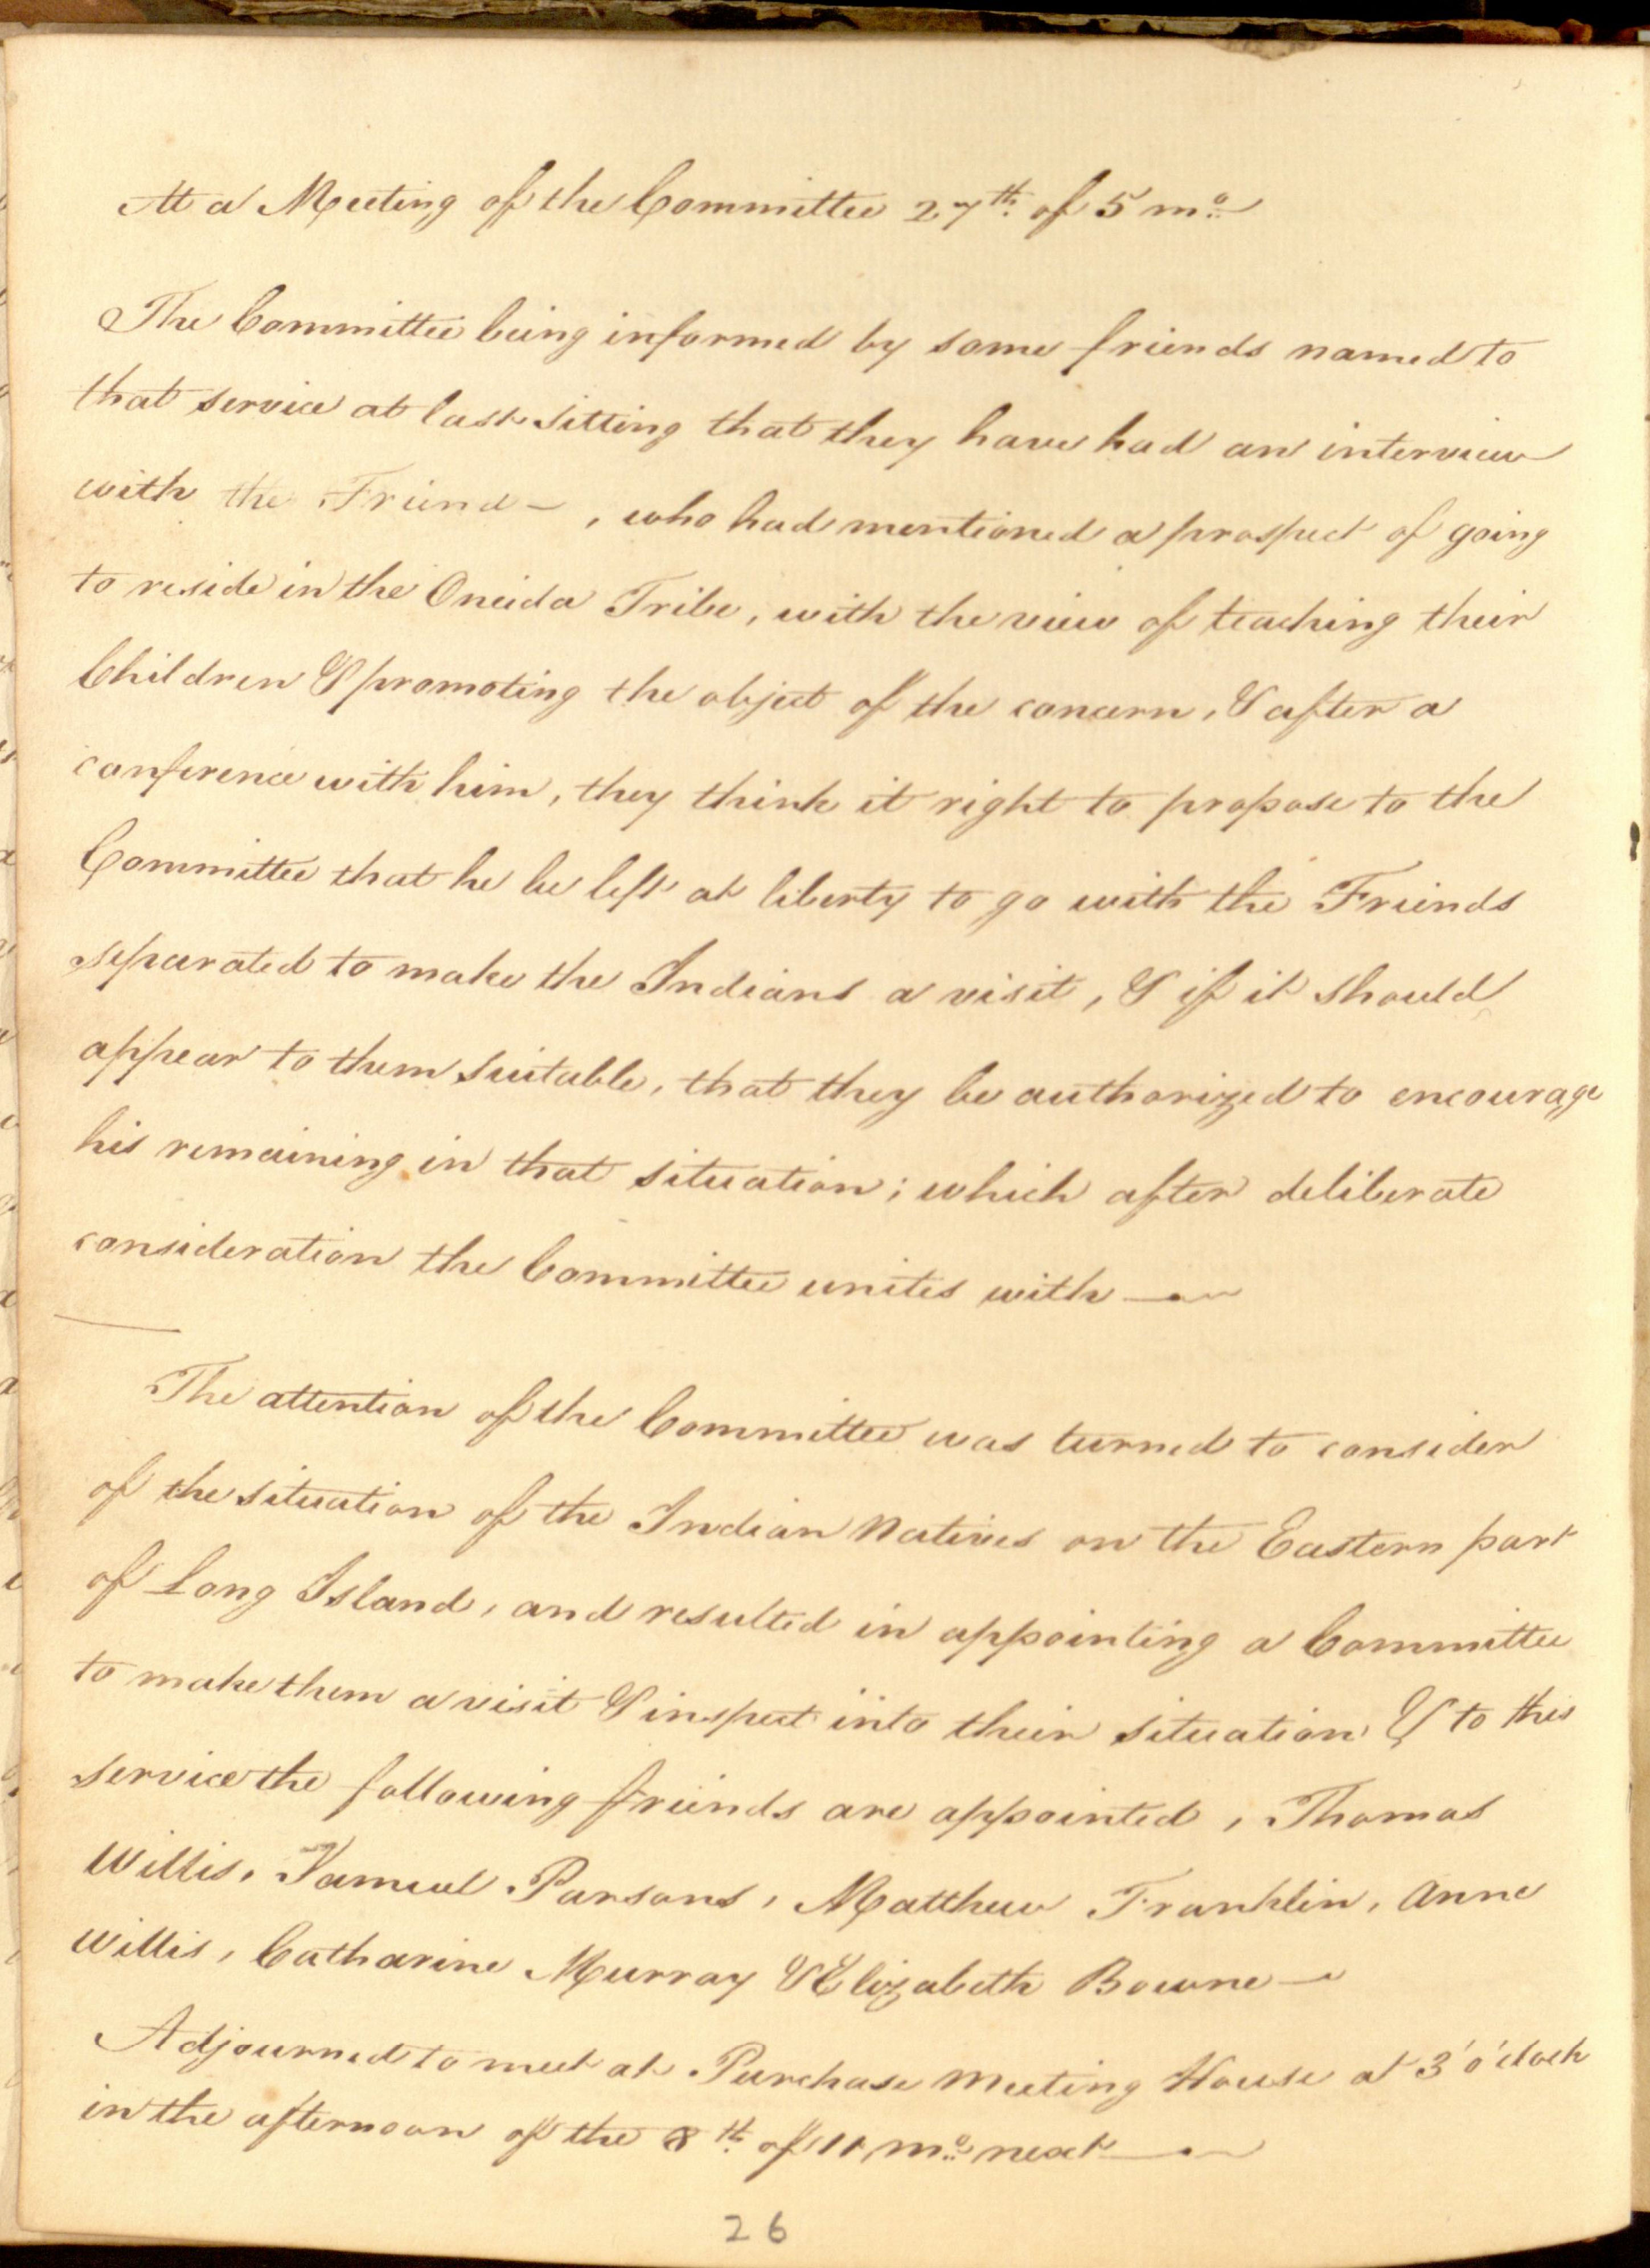 At a Meeting of the Committee 27th of 5 mo
The Committee being informed by some friends named to
that service at last sitting that they have had an interview
with the Friend —, who had mentioned a prospect of going
to reside in the Oneida Tribe, with the view of teaching their
Children & promoting the object of the concern, & after a
conference with him, they think it right to propose to the
Committee that he be left at liberty to go with the Friends
separated to make the Indians a visit, & if it should
appear to them suitable, that they be authorized to encourage
his remaining in that situation; which after deliberate
consideration the Committee unites with —
The attention of the Committee was turned to consider
of the situation of the Indian Natives on the Eastern part
of Long Island, and resulted in appointing a Committee
to make them a visit & inspect into their situation & to this
service the following friends are appointed, Thomas
Willis, Samuel Parsons, Matthew Franklin, Anne
Willis, Catharine Murray & Elizabeth Bowne —
Adjourned to meet at Purchase Meeting House at 3 o'clock
in the afternoon of the 8th of 11 mo next —
26